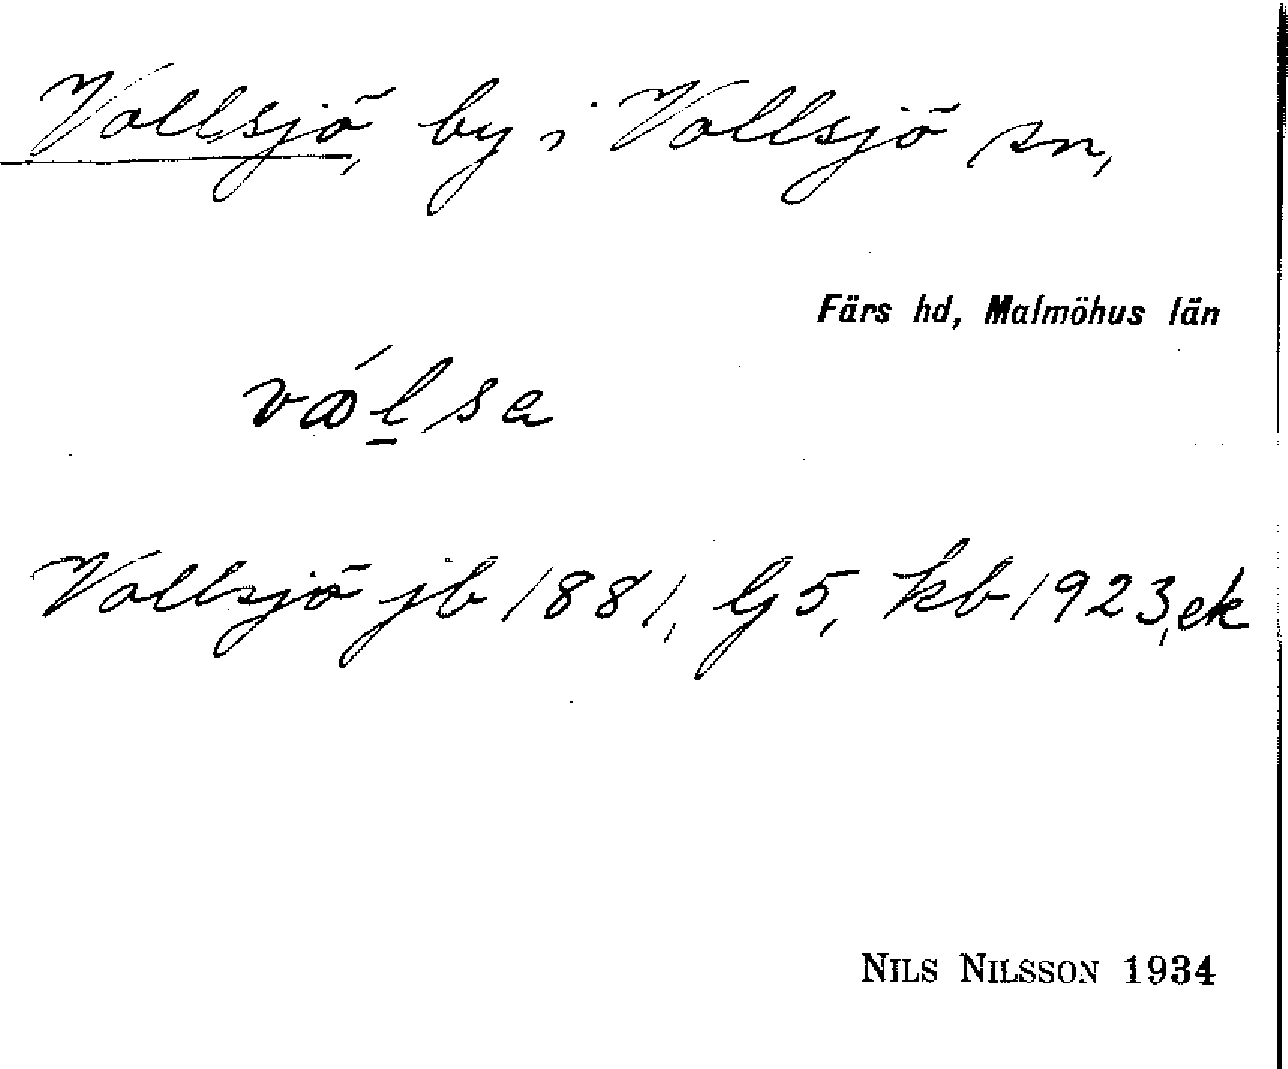 Vollsjö, by i Vollsjö sn,
Färs hd, Malmöhus län
Vollsjö jb 1881, Gj 5, kb 1923, ek
NILS NILSSON 1934